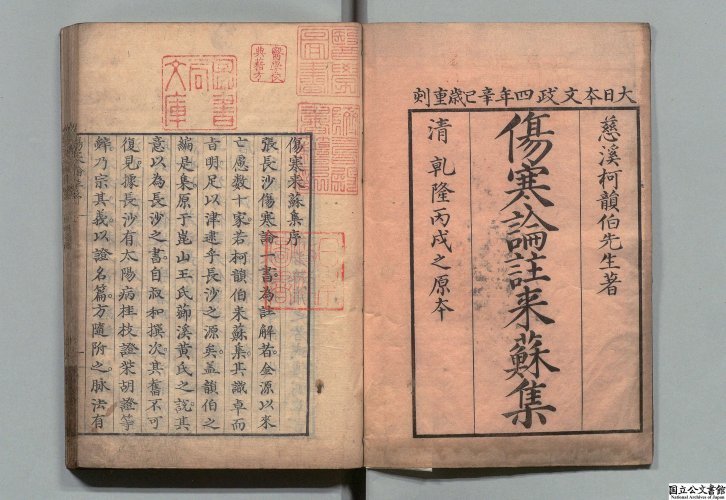 大日本文政四年辛巳歳重刻
慈溪柯韻伯先生著
傷寒論註来蘇集
清 乾隆丙戌之原本
傷寒来蘇集序
張長沙傷寒論一書為註解者金源以来
亡慮数十家若柯韻伯来蘇集其識卓而
旨明足以津逮乎長沙之源矣蓋韻伯之
編是集原于崑山王氏鄮溪黄氏之説其
意以為長沙之書自叔和撰次其舊不可
復見據長沙有太陽病桂枝證柴胡證等
辭乃宗其義以證名篇方隨附之脉法有
醫學之
典籍方
圖書
局
文庫
国立公文書館
National Archives of Japan